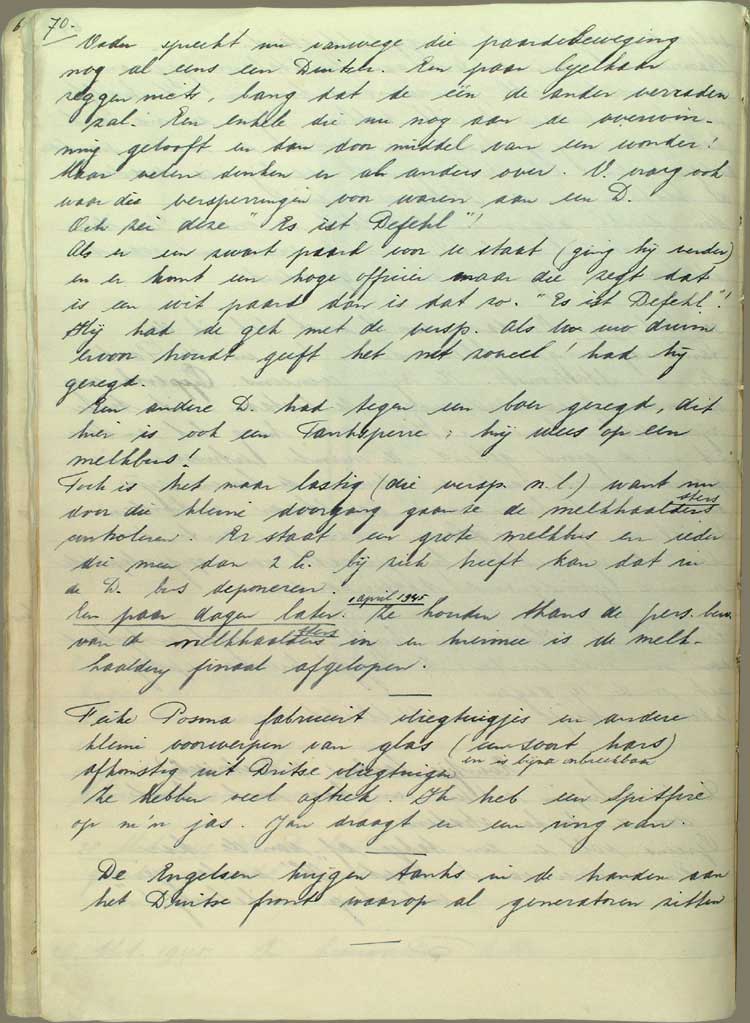 70.
Vader spreekt nu vanwege die paardebeweging
nog al eens een Duitser. Een paar bijelkaar
zeggen niets, bang dat de één de ander verraden
zal. Een enkele die nu nog aan de overwin-
ning gelooft en dan door middel van een wonder!
Maar velen denken er al anders over. V. vroeg ook
waar die versperringen voor waren aan een D.
Och zei deze "Es ist Befehl"!
Als er een zwart paard voor u staat (ging hij verder)
en er komt een hoge officier maar die zegt dat
is een wit paard dan is dat zo. "Es ist Befehl"!
Hij had de gek met de versp. Als we uw duim
ervoor houdt geeft het net zoveel! had hij
gezegd.
Een andere D. had tegen een boer gezegd, dit
hier is ook een Tanksperre; hij wees op een
melkbus!
Toch is het maar lastig (die versp. n.l.) want nu
door die kleine doorgang gaan ze de melkhaalsters
controleren. Er staat een grote melkbus en ieder
die meer dan 2 L. bij zich heeft kan dat in
de D. bus deponeren.
Een paar dagen later. april 1945 Ze houden thans de pers. bew.
van de melkhaalsters in en hiermee is de melk-
haalderij finaal afgelopen.
Feike Posma fabriceert vliegtuigjes en andere
kleine voorwerpen van glas (een soort hars)
afkomstig uit Duitse vliegtuigen en is bijna onbreekbaar
Ze hebben veel aftrek. Ik heb een Spitfire
op m'n jas. Jan draagt er een ring van.
De Engelsen krijgen tanks in de handen aan
het Duitse front waarop al generatoren zitten